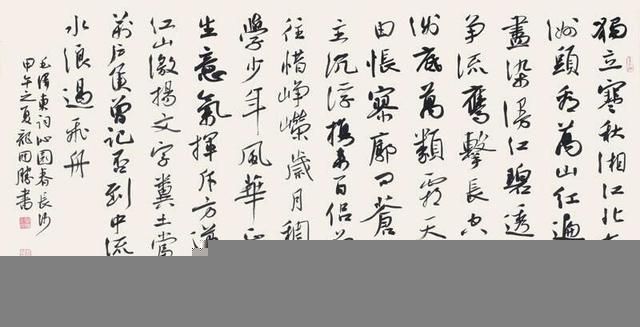 獨立寒秋湘江北
洲頭看萬山红遍
盡染漫江碧透
爭流鷹擊長空
淺底萬類霜天
由悵寥廓問蒼
主沉浮携來百侣
往惜崢嶸歲月稠
學少年風華正
生意氣揮斥方
江山激揚文字糞土當
萬户侯曾記否到中流
水浪遏飛舟
毛澤東詞沁園春長沙
甲午之夏書